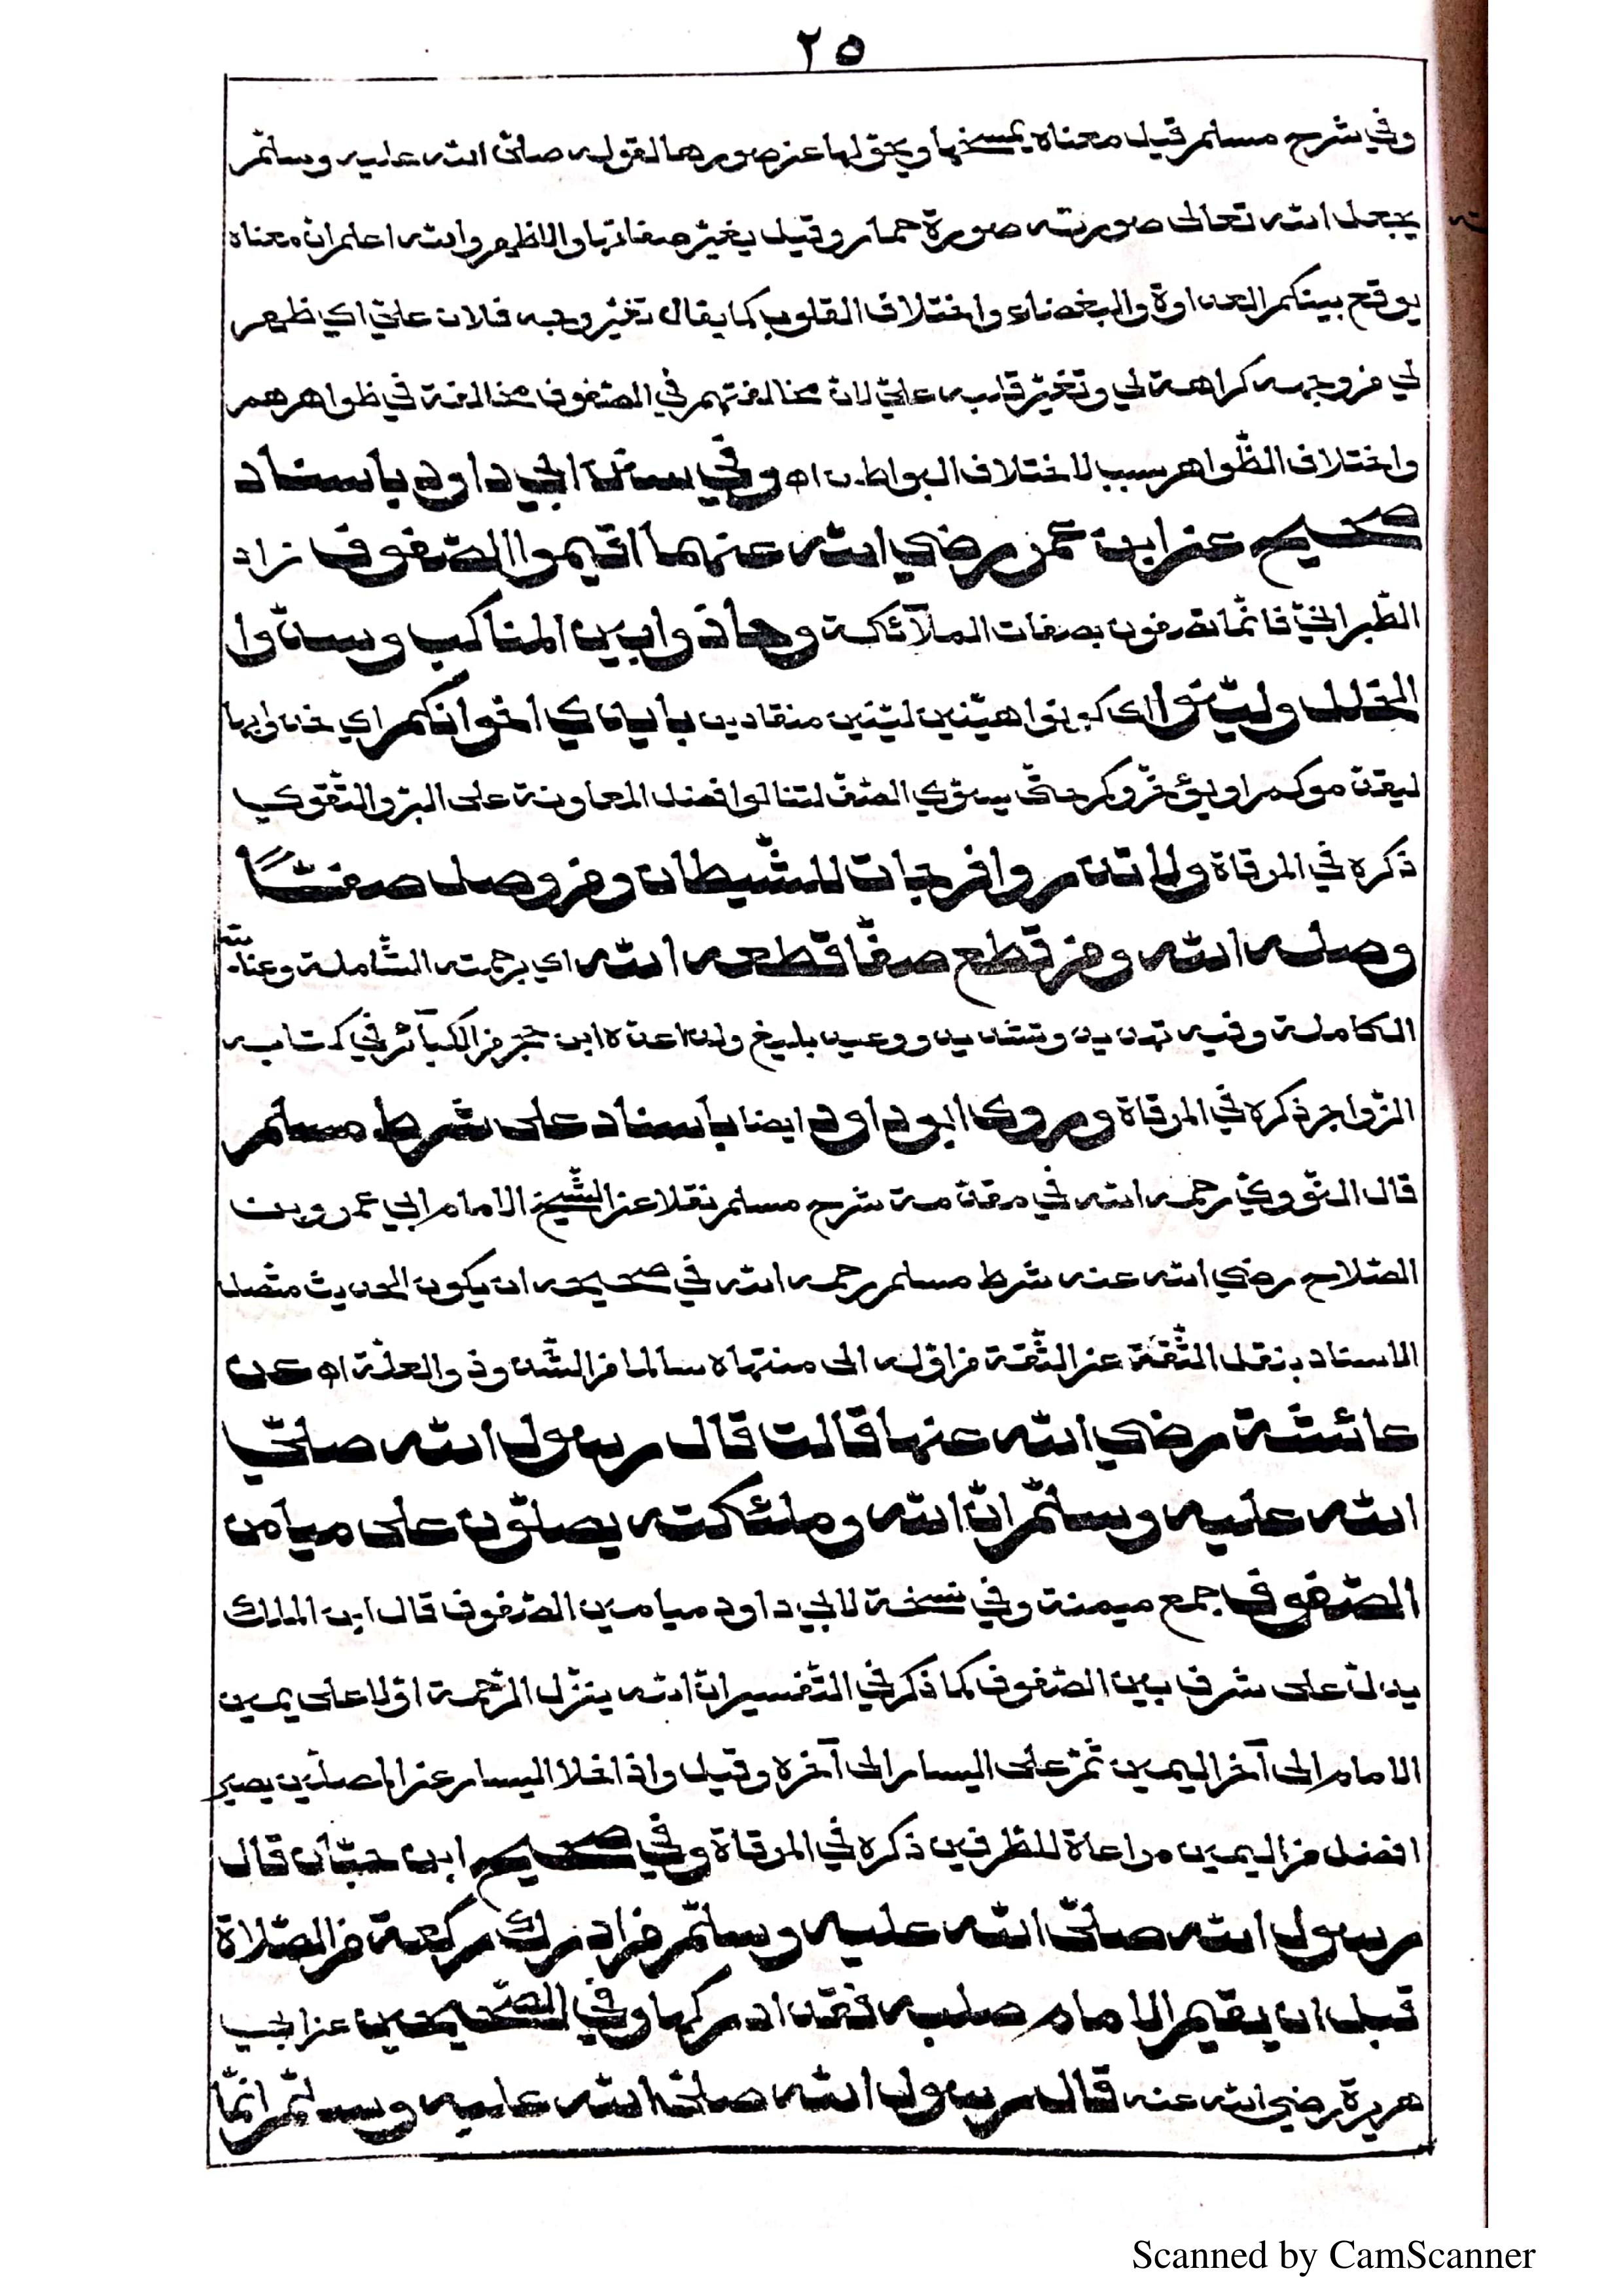 ٢٥
وفي شرح مسلم قيل معناه يمسخها ويحوّلها عن صورها لقوله صلّى الله عليه وسلّم
يجعل الله تعالى صورته صورة حمار وقيل يغيّر صفاتها والاظهر والله اعلم انّ معناه
يوقع بينكم العداوة والبغضاء واختلاف القلوب كما يقال تغيّر وجه فلان عليّ اي ظهر
لي من وجهه كراهة لي وتغيّر قلبه عليّ لانّ مخالفتهم في الصّفوف مخالفة في ظواهرهم
واختلاف الظّواهر سبب لاختلاف البواطن اه وفي سنن ابي داود باسناد
صحيح عن ابن عمر رضي الله عنهما اقيموا الصّفوف زاد
الطّبرانيّ فانّما تصفّون بصفات الملآئكة وحاذوا بين المناكب وسدّوا
الخلل وليّنوا اي كونوا هيّنين ليّنين منقادين بأيدي اخوانكم اي خذوا بها
ليقدّموكم او يؤخّروكم حتّى يستوي الصّفّ لتنالوا فضل المعاونة على البرّ والتّقوى
ذكره في المرقاة ولا تذروا فرجات للشّيطان ومن وصل صفًّا
وصله الله ومن قطع صفّا قطعه الله اي برحمته الشّاملة وعنايته
الكاملة وفيه تهديد وتشديد ووعيد بليغ ولذا عدّه ابن حجر من الكبآئر في كتابه
الزّواجر ذكره في المرقاة وروى ابو داود ايضا باسناد على شرط مسلم
قال النّوويّ رحمه الله في مقدّمة شرح مسلم نقلا عن الشّيخ الامام ابي عمرو بن
الصّلاح رضي الله عنه شرط مسلم رحمه الله في صحيحه ان يكون الحديث متّصل
الاسناد بنقل الثّقة عن الثّقة من اوّله الى منتهاه سالما من الشّذوذ والعلّة اه عن
عائشة رضي الله عنها قالت قال رسول الله صلّى
الله عليه وسلّم انّ الله وملئكته يصلّون على ميامن
الصّفوف جمع ميمنة وفي نسخة لابي داود ميامين الصّفوف قال ابن الملك
يدلّ على شرف يمين الصّفوف كما ذكر في التّفسير انّ الله ينزّل الرّحمة اوّلا على يمين
الامام الى آخر اليمين ثمّ على اليسار الى آخره وقيل واذا خلا اليسار عن المصلّين يصير
افضل من اليمين مراعاة للطّرفين ذكره في المرقاة وفي صحيح ابن حبّان قال
رسول الله صلّى الله عليه وسلّم من ادرك ركعة من الصّلاة
قبل ان يقيم الامام صلبه فقد ادركها وفي الصّحيحين عن ابي
هريرة رضي الله عنه قال رسول الله صلّى الله عليه وسلّم انّما
Scanned by CamScanner